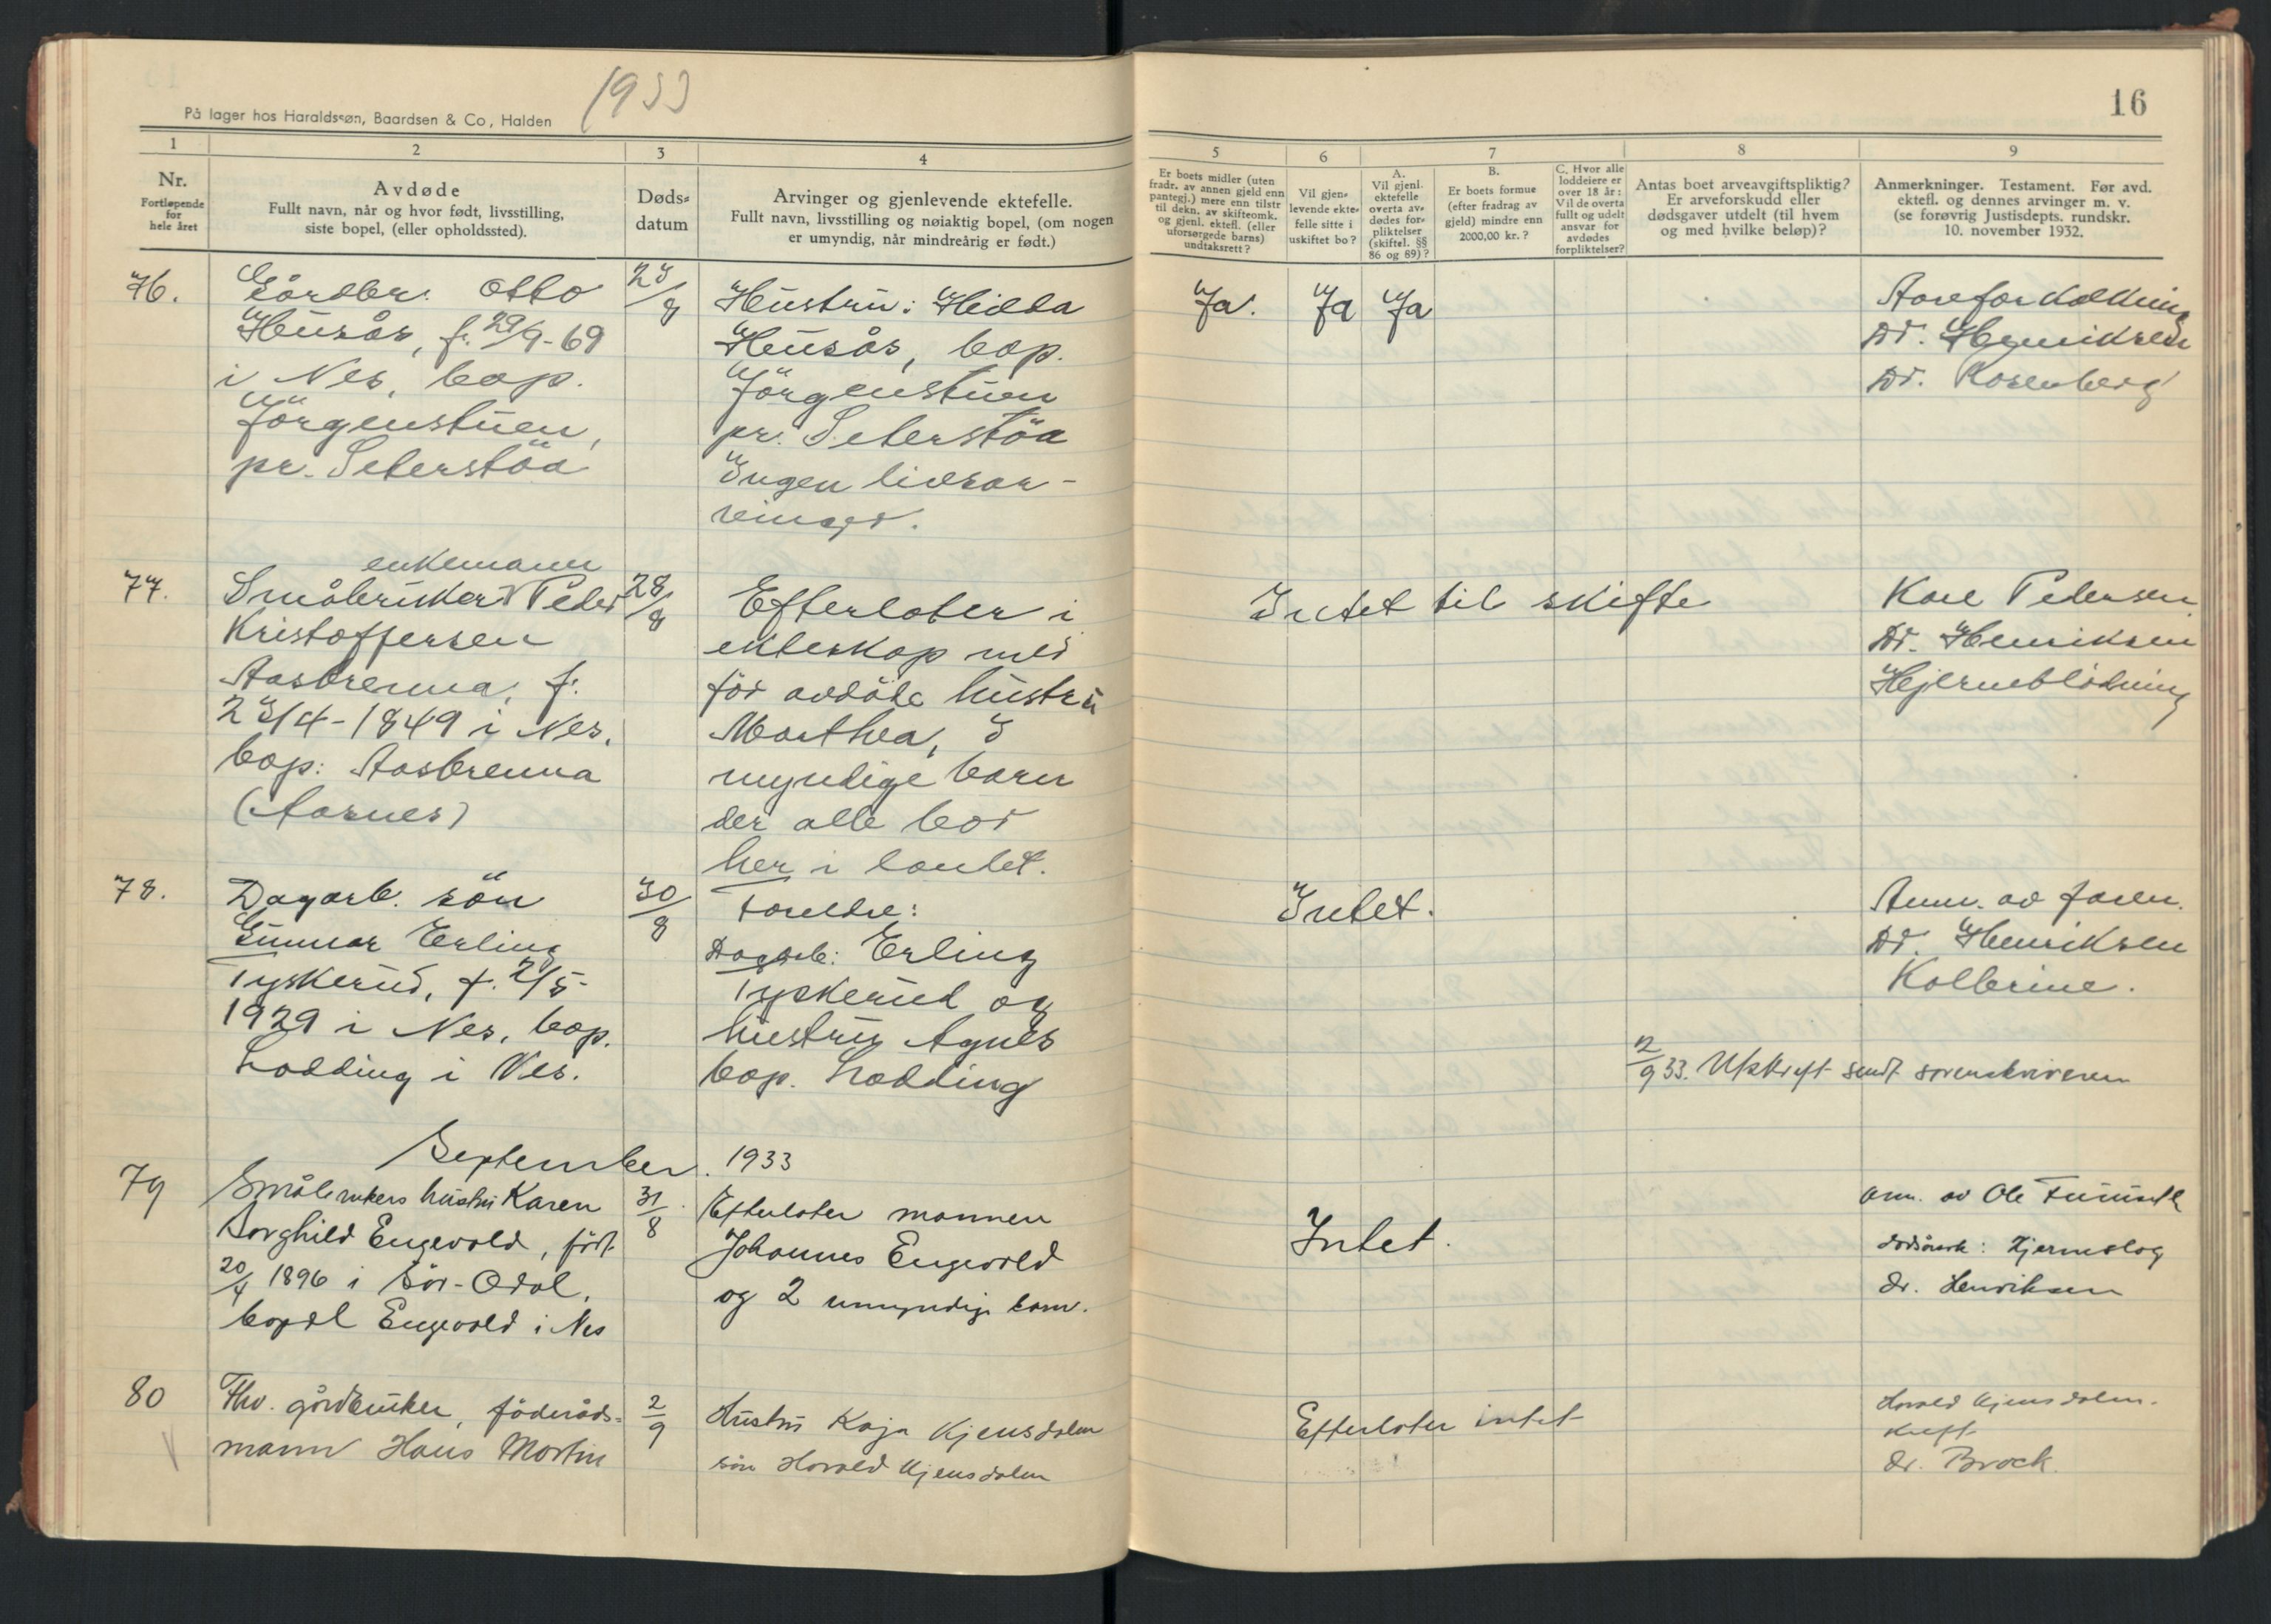 1933
På lager hos Haraldssøn, Baardsen & Co, Halden
1
2
3
4
Nr.
Fortløpende
for
hele året
Avdøde
Fullt navn, når og hvor født, livsstilling,
siste bopel, (eller opholdssted).
Døds-
datum
Arvinger og gjenlevende ektefelle.
Fullt navn, livsstilling og nøiaktig bopel, (om nogen
er umyndig, når mindreårig er født.)
76.
Gårdbr. Otto
Husås, f. 29/9-69
i Nes, bop.
Jörgenstuen,
pr. Seterstöa
23/8
Hustru: Hilda
Husås, bop.
Jörgenstuen
pr. Seterstöa
Ingen livsar-
vinger.
77.
enkemann
Småbruker Peder
Kristoffersen
Aasbrenna, f.
23/4-1849 i Nes,
bop: Aasbrenna
(Aarnes)
28/8
Efterlater i
ekteskap med
för avdöde hustru
Marthea, 3
myndige barn
der alle bor
her i landet.
78.
Dagarb. sön
Gunnar Erling
Tyskerud, f. 2/5-
1929 i Nes, bop.
Lodding i Nes.
30/8
Foreldre:
Dagarb: Erling
Tyskerud og
hustru Agnes
bop. Lodding
September. 1933
79
Småbrukers hustru Karen
Borghild Engevold, född
20/4 1896 i Sör-Odal,
bopel Engevold i Nes
31/8
Efterlater mannen
Johannes Engevold
og 2 umyndige barn.
80
Fhv. gårdbruker, föderåds-
mann Hans Martin
2/9
Hustru Kaja Kjensdalen
sön Harald Kjensdalen
16
5
6
7
8
9
Er boets midler (uten
fradr. av annen gjeld enn
pantegj.) mere enn tilstr
til dekn. av skifteomk.
og gjenl. ektefl. (eller
uforsørgede barns)
undtaksrett?
Vil gjen-
levende ekte-
felle sitte i
uskiftet bo?
A.
Vil gjenl.
ektefelle
overta av-
dødes for-
pliktelser
(skiftel. §§
86 og 89)?
B.
Er boets formue
(efter fradrag av
gjeld) mindre enn
2000,00 kr.?
C. Hvor alle
loddeiere er
over 18 år:
Vil de overta
fullt og udelt
ansvar for
avdødes
forpliktelser?
Antas boet arveavgiftspliktig?
Er arveforskudd eller
dødsgaver utdelt (til hvem
og med hvilke beløp)?
Anmerkninger. Testament. Før avd.
ektefl. og dennes arvinger m. v.
(se forøvrig Justisdepts. rundskr.
10. november 1932.
Ja.
Ja
Ja
Aareforkalkning
Dr. Henriksen
Dr. Rosenberg
Intet til skifte
Kare Pedersen
Dr. Henriksen
Hjerneblödning
Intet.
Anm. av faren.
Dr. Henriksen
Kolerine.
2/9 33. Utskrift sendt sorenskriveren
Intet.
anm. av Ole
dödsårsak: Hjerneslag
dr. Henriksen
Efterlater intet
Harald Kjensdalen.
Kreft
dr. Brock.